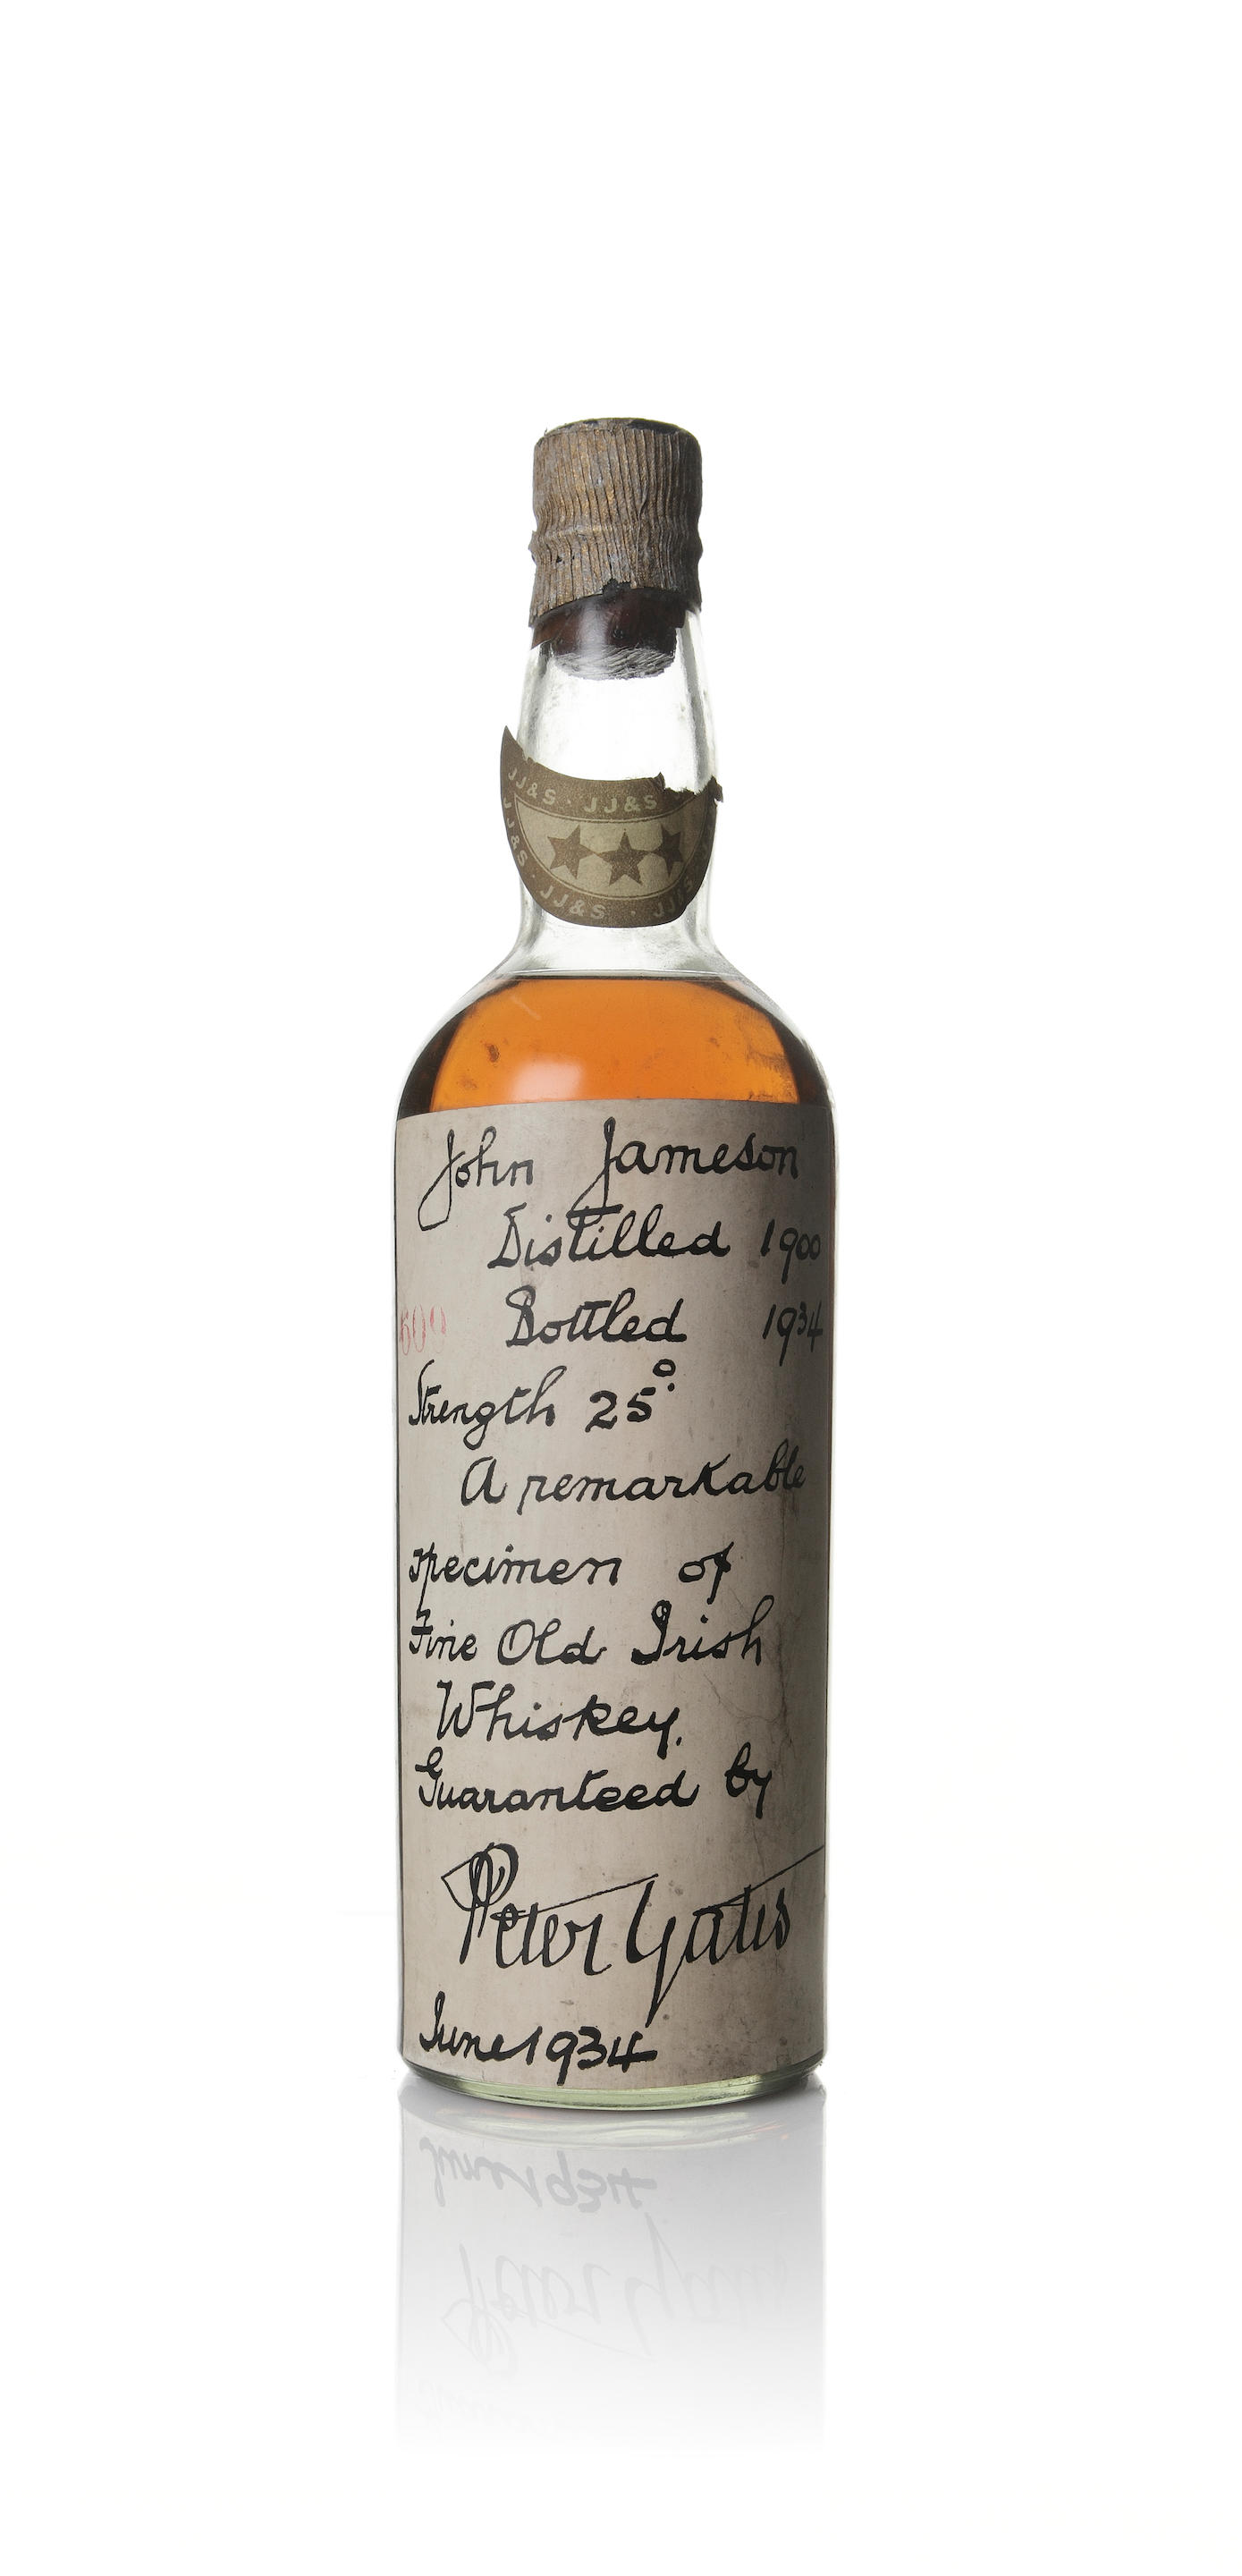 JJ&S · JJ&S
JJ&S · JJ&S · JJ&S
John Jameson
Distilled 1900
Bottled 1934
609
Strength 25°.
A remarkable
specimen of
Fine Old Irish
Whiskey.
Guaranteed by
Peter Yates
June 1934